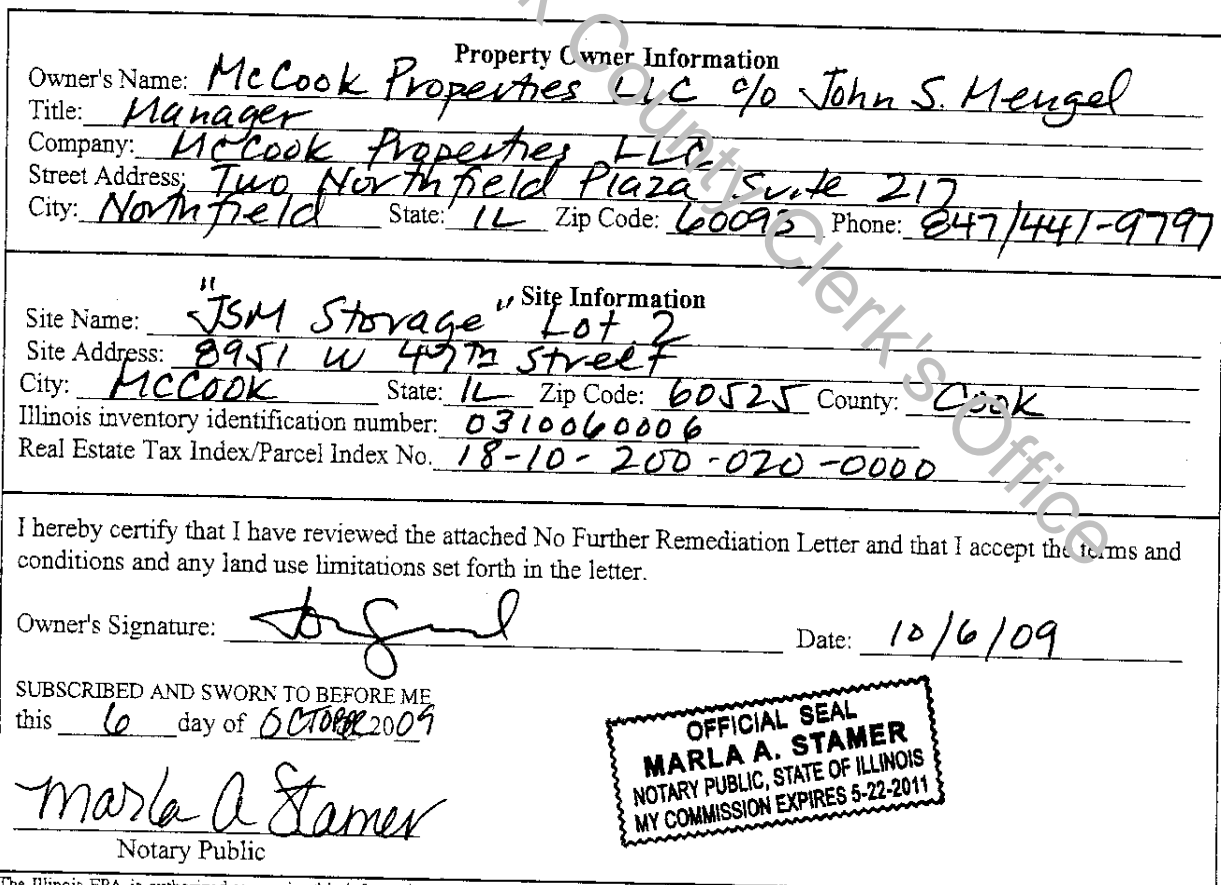 Property Owner Information
Owner's Name: McCook Properties LLC c/o John S. Mengel
Title: Manager
Company: McCook Properties LLC
Street Address: Two Northfield Plaza Suite 217
City: Northfield State: IL Zip Code: 60093 Phone: 847/441-9797
Site Information
Site Name: "JSM Storage" Lot 2
Site Address: 8951 W 47th Street
City: McCook State: IL Zip Code: 60525 County: Cook
Illinois inventory identification number: 0310060006
Real Estate Tax Index/Parcel Index No. 18-10-200-020-0000
I hereby certify that I have reviewed the attached No Further Remediation Letter and that I accept the terms and
conditions and any land use limitations set forth in the letter.
Owner's Signature: Date: 10/6/09
SUBSCRIBED AND SWORN TO BEFORE ME
this 6 day of OCTOBER 2009
Marla A Stamer
Notary Public
OFFICIAL SEAL
MARLA A. STAMER
NOTARY PUBLIC, STATE OF ILLINOIS
MY COMMISSION EXPIRES 5-22-2011
County Clerk's Office
The Illinois EPA is authorized